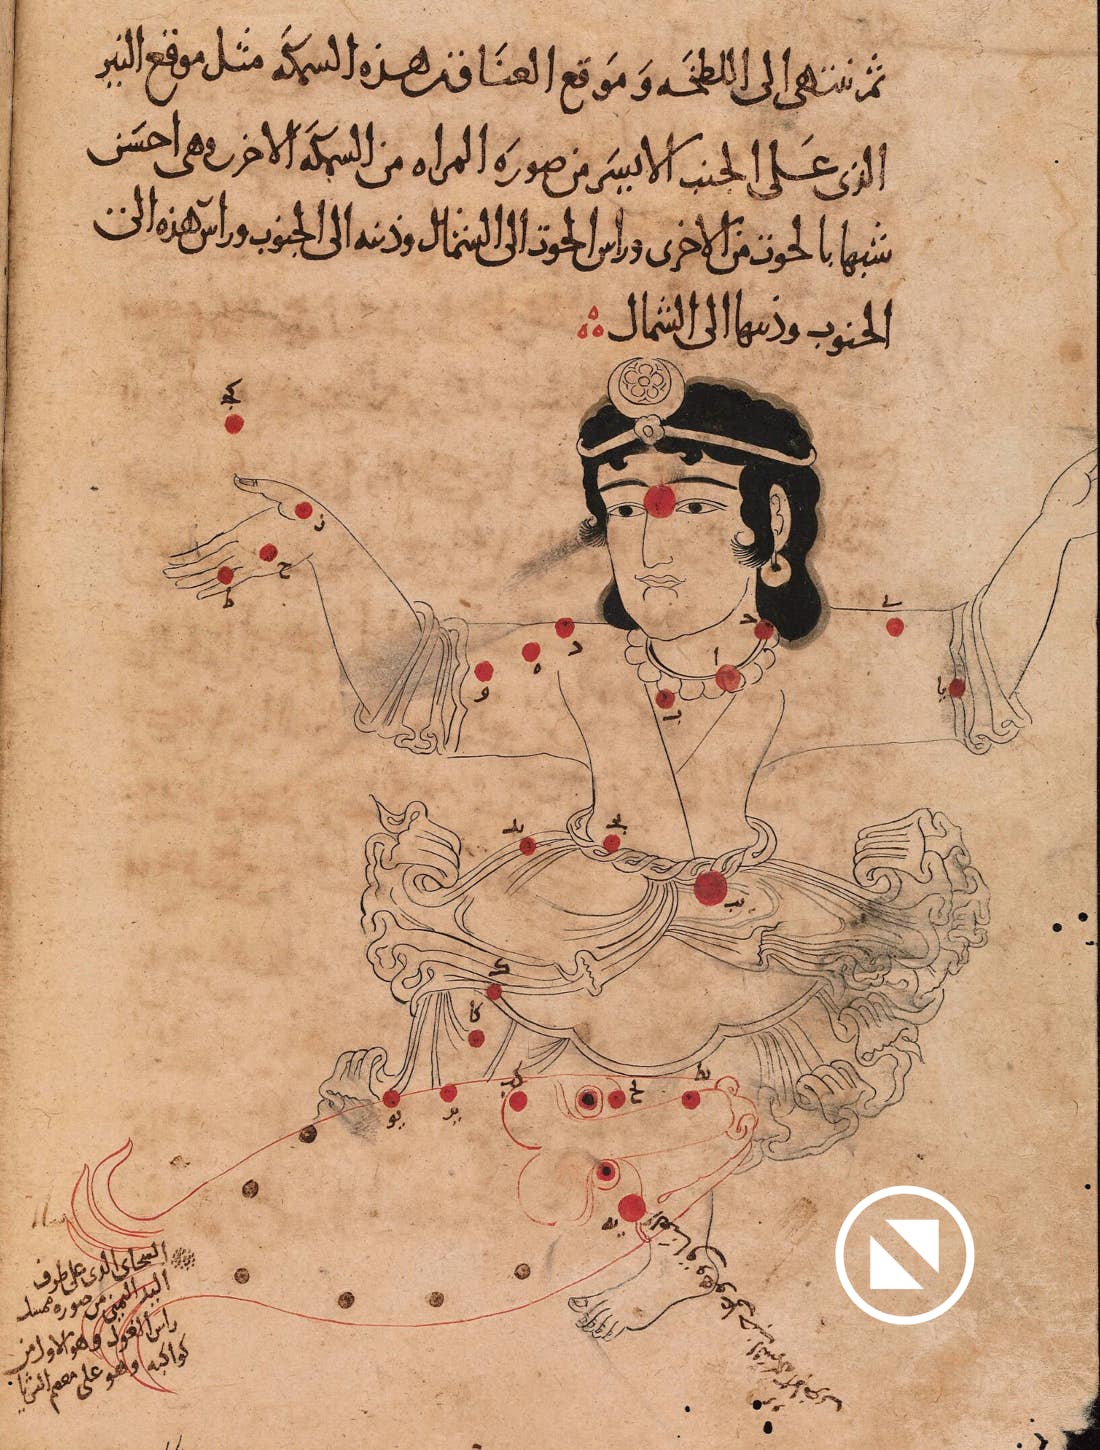 ثم تنتهى الى اللطخه و موقع العناق من هذه السمكة مثل موقع النير
الذى على الجنب الايسر من صورة المراه من السمكة الاخرى وهى احسن
شبها بالحوت من الاخرى وراس الحوت الى الشمال وذنبه الى الجنوب وراس هذه الى
الجنوب وذنبها الى الشمال
كج
ز
ح
ط
د
ه
و
ح
ا
ب
ى
يا
يد
يج
يب
ك
كا
كب
يح
يط
يو
يز
يه
السحابى الذى على طرف
اليد اليمنى من صورة ممسك
راس الغول وهو الاول من
كواكبه وهو على معصم الثريا